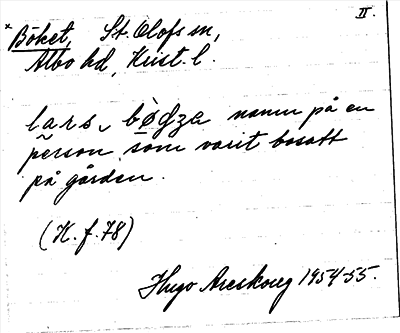 II.
*Böket, St. Olofs sn,
Albo hd, Krist. l.
lars bògza namn på en
person som varit bosatt
på gården.
(K. f. 78)
Hugo Areskoug 1954-55.